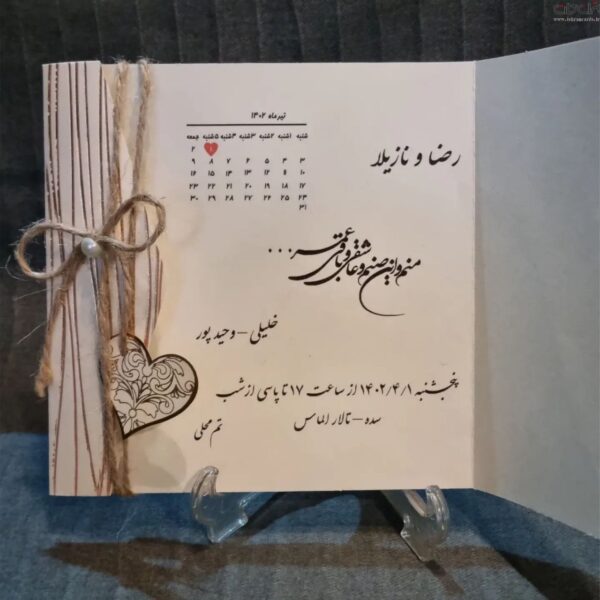 تیرماه ۱۴۰۲
شنبه ۱شنبه ۲شنبه ۳شنبه ۴شنبه ۵شنبه جمعه
۱ ۲
۳ ۴ ۵ ۶ ۷ ۸ ۹
۱۰ ۱۱ ۱۲ ۱۳ ۱۴ ۱۵ ۱۶
۱۷ ۱۸ ۱۹ ۲۰ ۲۱ ۲۲ ۲۳
۲۴ ۲۵ ۲۶ ۲۷ ۲۸ ۲۹ ۳۰
۳۱
رضا و نازیلا
منم و این صنم و عاشقی و باقی عمر ...
خلیلی – وحید پور
پنجشنبه ۱۴۰۲/۴/۱ از ساعت ۱۷ تا پاسی از شب
سده – تالار الماس
تم محلی